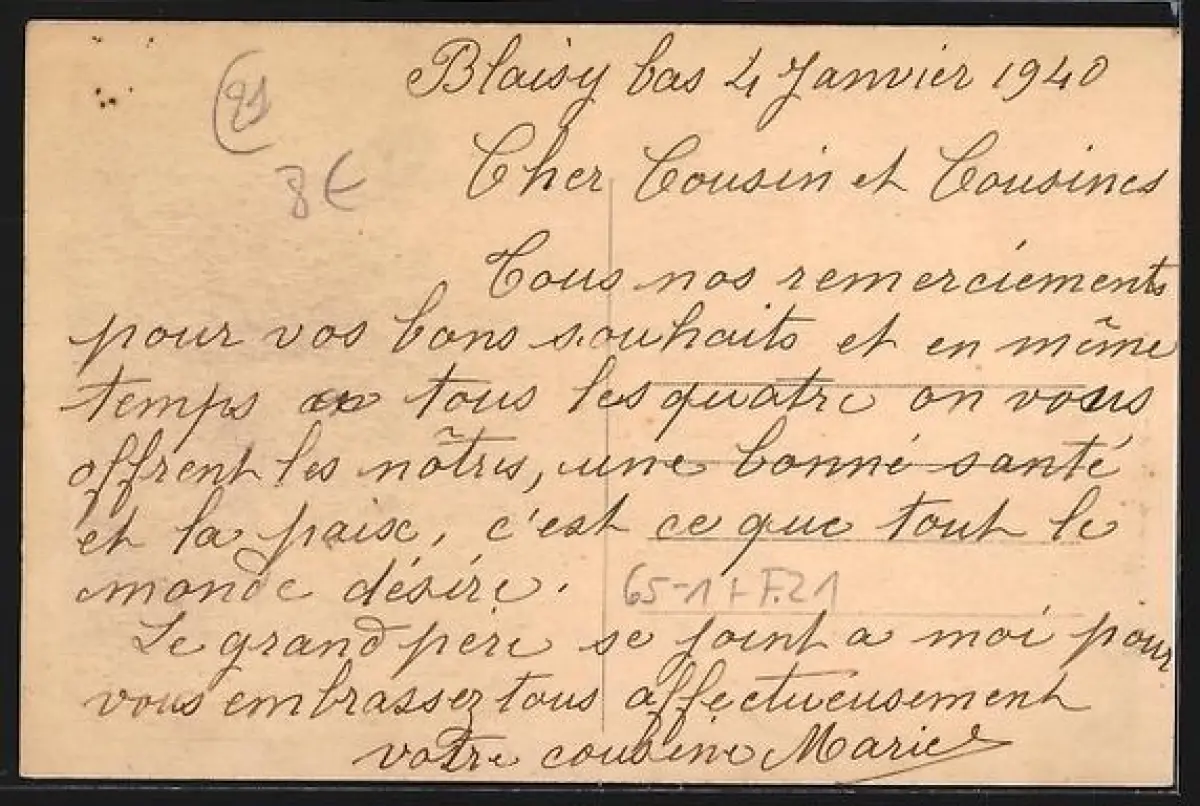 Blaisy bas 4 Janvier 1940
(21
8€
Cher Cousin et Cousines
Tous nos remerciements
pour vos bons souhaits et en même
temps tous les quatre on vous
offrent les nôtres, une bonné santé
et la paix, c'est ce que tout le
monde désire.
65-1+F.21
Le grand père se joint a moi pour
vous embrassez tous affectueusement
votre cousine Marie